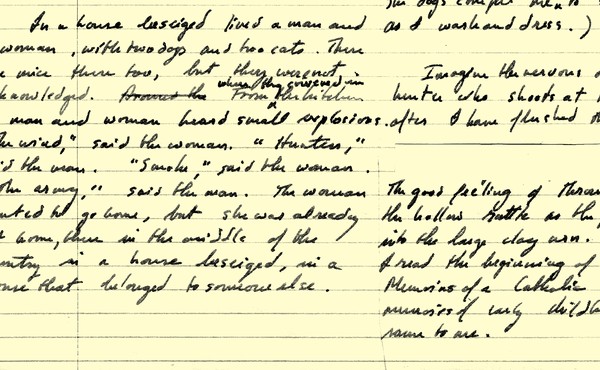 In a house besieged lived a man and
woman, with two dogs and two cats. There
mice there too, but they were not
knowledged. Around the From the kitchen where they cowered in
man and woman heard small explosions.
he wind," said the woman. "Hunters,"
id the man. "Smoke," said the woman.
he army," said the man. The woman
nted to go home, but she was already
home, there in the middle of the
untry in a house besieged, in a
use that belonged to someone else.
the dogs compel me to
as I wash and dress.)
Imagine the nervous
hunter who shoots at
after I have flushed
The good feeling of
the hollow rattle as they
into the large clay urn.
I read the beginning of
Memoirs of a Catholic
memories of early
same to me.